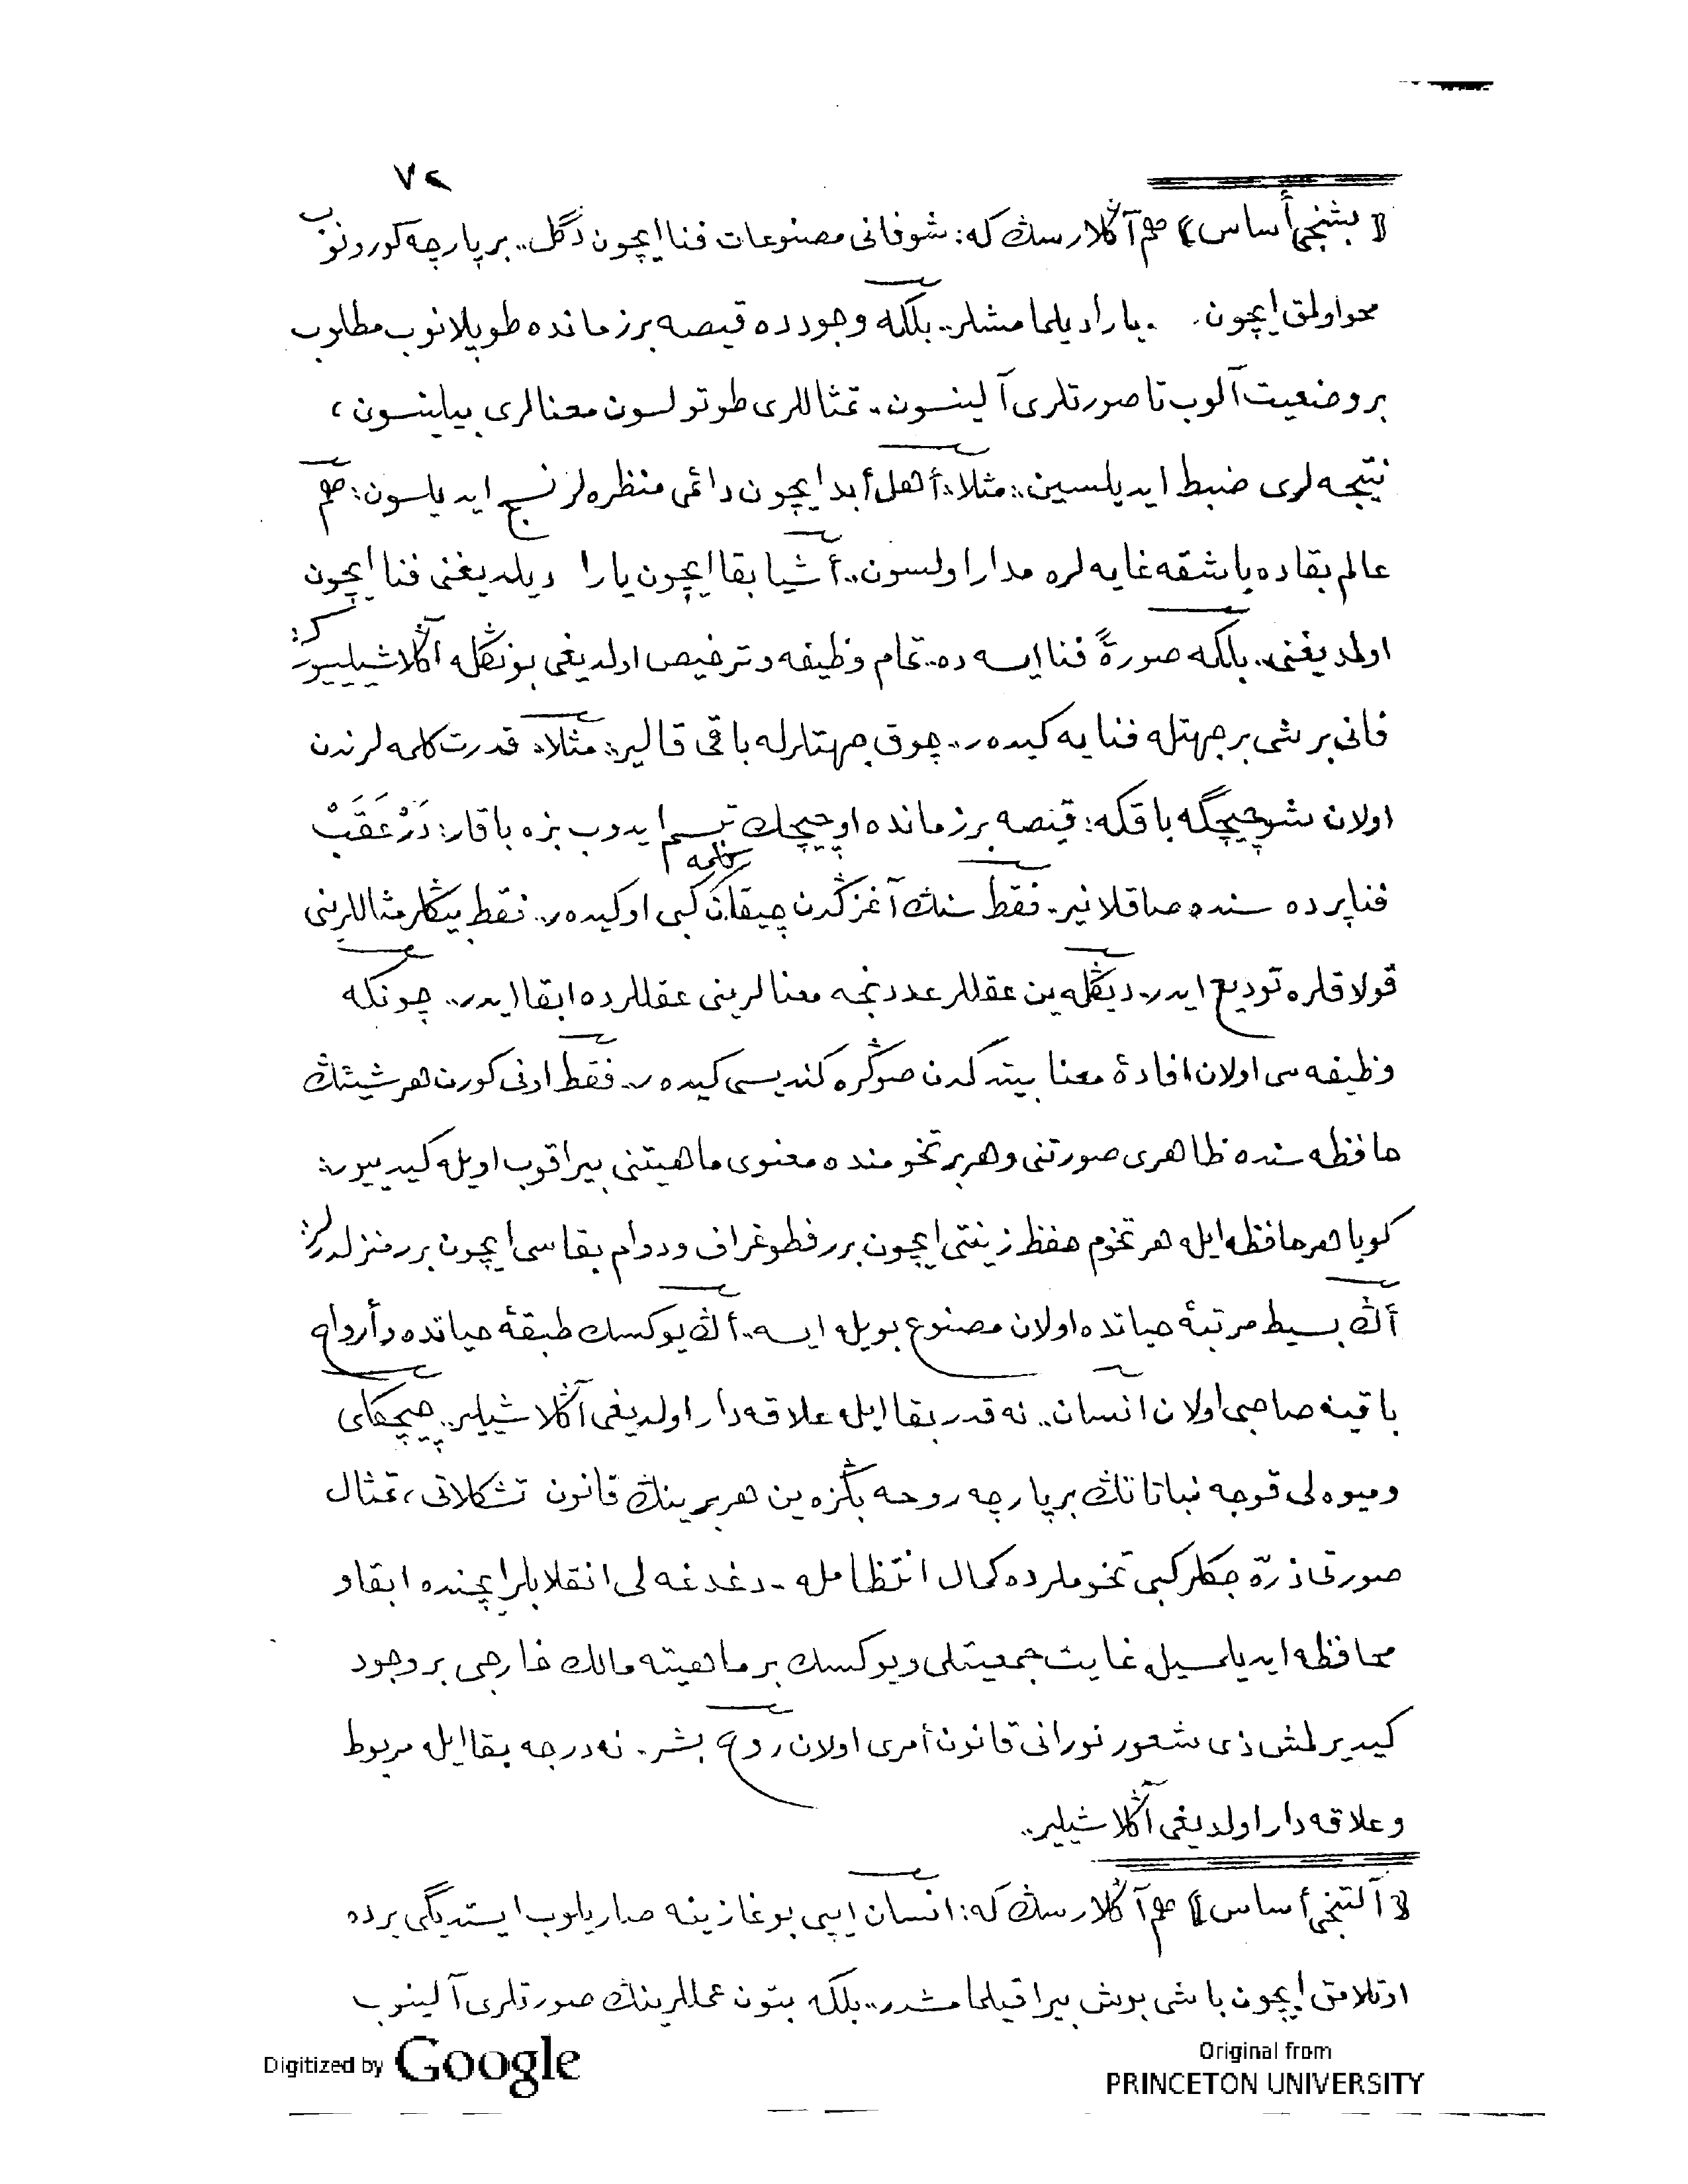 ٧٢
﴿ بشنجی أساس ﴾ هم آڭلارسڭ كه: شو فانی مصنوعات فنا ایچون دگل.. بر پارچه كورونوب
محو اولمق ایچون یارادیلمامشلر.. بلكه وجودده قیصه بر زمانده طوپلانوب مطلوب
بر وضعیت آلوب تا صورتلری آلینسون.. تمثاللری طوتولسون معنالری بیلینسون،
نتیجه‌لری ضبط ایدیلسین.. مثلا: أهل أبد ایچون دائمی منظره‌لر نسج ایدیلسون: هم
عالم بقاده باشقه غایه‌لره مدار اولسون.. أشیا بقا ایچون یارادیلدیغنی فنا ایچون
اولمدیغنی.. بلكه صورةً فنا ایسه ده.. تمام وظیفه و ترخیص اولدیغی بونڭله آڭلاشیلییور كه:
فانی بر شی بر جهتله فنایه كیده‌ر.. چوق جهتلرله باقی قالیر: مثلا: قدرت كلمه لرندن
اولان شو چیچگه باق كه: قیصه بر زمانده او چیچك تبسم ایدوب بزه باقار: دَرْعَقَبْ
فنا پرده سنده صاقلانیر. فقط سنڭ آغزڭدن چیقان كلمه كبی او كیده‌ر.. فقط بیڭلر مثاللرینی
قولاقلره تودیع ایدر. دیڭله‌ین عقللر عددنجه معنالرینی عقللرده ابقا ایدر.. چونكه
وظیفه سی اولان افادۀ معنا بیتدكدن صوڭره كندیسی كیده‌ر.. فقط اونی كورن هر شیئڭ
حافظه سنده ظاهری صورتنی و هر بر تخومنده معنوی ماهیتنی بیراقوب اویله كیدییور:
كویا هر حافظه ایله هر تخوم حفظ زینتی ایچون برر فطوغراف و دوام بقاسی ایچون برر منزلدرلر:
أڭ بسیط مرتبۀ حیاتده اولان مصنوع بویله ایسه.. أڭ یوكسك طبقۀ حیاتده و أرواح
باقیه صاحبی اولان انسان.. نه قدر بقا ایله علاقه‌دار اولدیغی آڭلاشیلیر.. چیچكلی
و میوه‌لی قوجه نباتاتڭ بر پارچه روحه بڭزه‌ین هر برینڭ قانون تشكلاتی، تمثال
صورتی ذرّه جكلر كبی تخوملرده كمال انتظامله.. دغدغه‌لی انقلابلر ایچنده ابقا و
محافظه ایدیلمسیله غایت جمعیتلی و یوكسك بر ماهیته مالك خارجی بر وجود
كیدیرلمش ذی شعور نورانی قانون أمری اولان روح بشر. نه درجه بقا ایله مربوط
و علاقه‌دار اولدیغی آڭلاشیلیر..
﴿ آلتنجی أساس ﴾ هم آڭلارسڭ كه: انسان ایپی بوغازینه صاریلوب ایستدیگی یرده
اوتلامق ایچون باشی بوش بیراقیلمامشدر.. بلكه بتون عمللرینڭ صورتلری آلینوب
Digitized by Google
Original from
PRINCETON UNIVERSITY